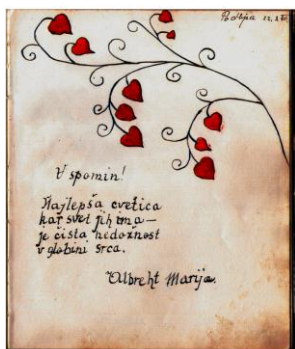 V spomin!
Najlepša cvetica
kar svet jih ima—
je čista nedožnost
v globini srca.
Albreht Marija.